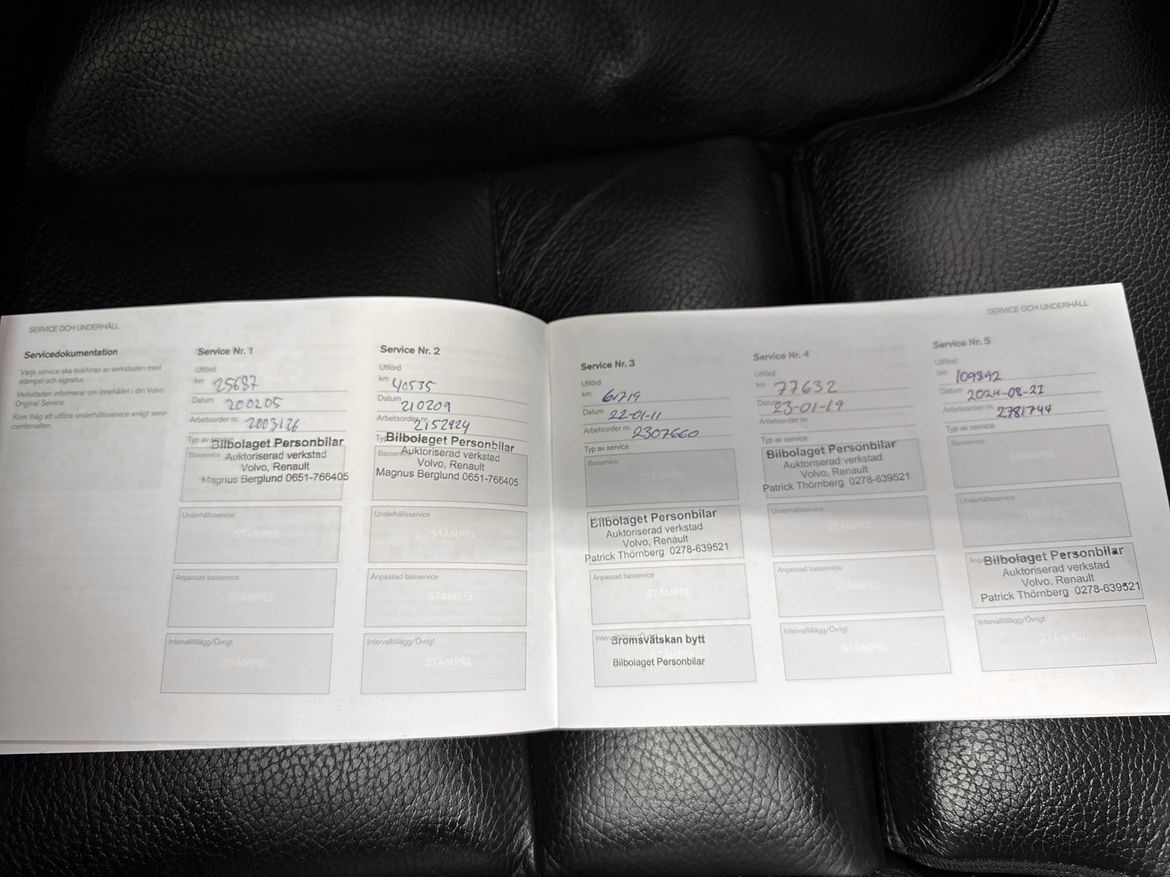 SERVICE OCH UNDERHÅLL
Servicedokumentation
Varje service ska bokföras av verkstaden med
stämpel och signatur.
Verkstaden informerar om innehållet i din Volvo
Original Service.
Kom ihåg att utföra underhållsservice enligt servi-
ceintervallen.
Service Nr. 1
Utförd
km 25687
Datum 200205
Arbetsorder nr. 2003126
Typ av service
Basservice
Bilbolaget Personbilar
Auktoriserad verkstad
Volvo, Renault
Magnus Berglund 0651-766405
Underhållsservice
STÄMPEL
Anpassad basservice
STÄMPEL
Intervalltillägg/Övrigt
STÄMPEL
Service Nr. 2
Utförd
km 40535
Datum 210209
Arbetsorder nr. 2152924
Bilbolaget Personbilar
Auktoriserad verkstad
Volvo, Renault
Magnus Berglund 0651-766405
Underhållsservice
STÄMPEL
Anpassad basservice
STÄMPEL
Intervalltillägg/Övrigt
STÄMPEL
Service Nr. 3
Utförd
km 61719
Datum 22-01-11
Arbetsorder nr. 2307660
Typ av service
Basservice
STÄMPEL
Bilbolaget Personbilar
Auktoriserad verkstad
Volvo, Renault
Patrick Thörnberg 0278-639521
Anpassad basservice
STÄMPEL
Intervalltillägg/Övrigt
Bromsvätskan bytt
Bilbolaget Personbilar
SERVICE OCH UNDERHÅLL
Service Nr. 4
Utförd
km 77632
Datum 23-01-19
Arbetsorder nr.
Typ av service
Bilbolaget Personbilar
Auktoriserad verkstad
Volvo, Renault
Patrick Thörnberg 0278-639521
Underhållsservice
STÄMPEL
Anpassad basservice
STÄMPEL
Intervalltillägg/Övrigt
STÄMPEL
Service Nr. 5
Utförd
km 109892
Datum 2024-08-22
Arbetsorder nr. 2781744
Typ av service
Basservice
STÄMPEL
Underhållsservice
STÄMPEL
Bilbolaget Personbilar
Auktoriserad verkstad
Volvo, Renault
Patrick Thörnberg 0278-639521
Intervalltillägg/Övrigt
STÄMPEL